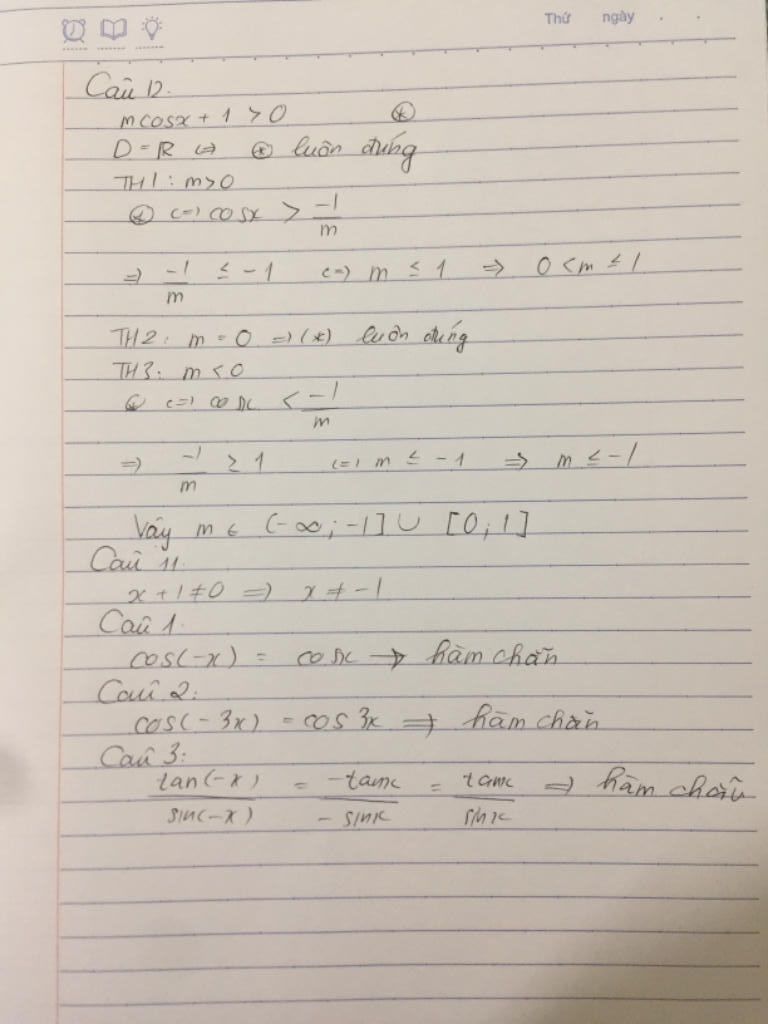 Thứ ngày . .
Câu 12.
mcosx + 1 > 0 (*)
D = R <=> (*) luôn đúng
TH1: m>0
(*) <=> cosx > -1/m
=> -1/m ≤ -1 <=> m ≤ 1 => 0 < m ≤ 1
TH2: m = 0 => (*) luôn đúng
TH3: m < 0
(*) <=> cosx < -1/m
=> -1/m ≥ 1 <=> m ≤ -1 => m ≤ -1
Vậy m ∈ (-∞; -1] ∪ [0; 1]
Câu 11.
x + 1 ≠ 0 => x ≠ -1
Câu 1.
cos(-x) = cosx -> hàm chẵn
Câu 2:
cos(-3x) = cos3x => hàm chẵn
Câu 3:
tan(-x)/sin(-x) = -tanx/-sinx = tanx/sinx => hàm chẵn